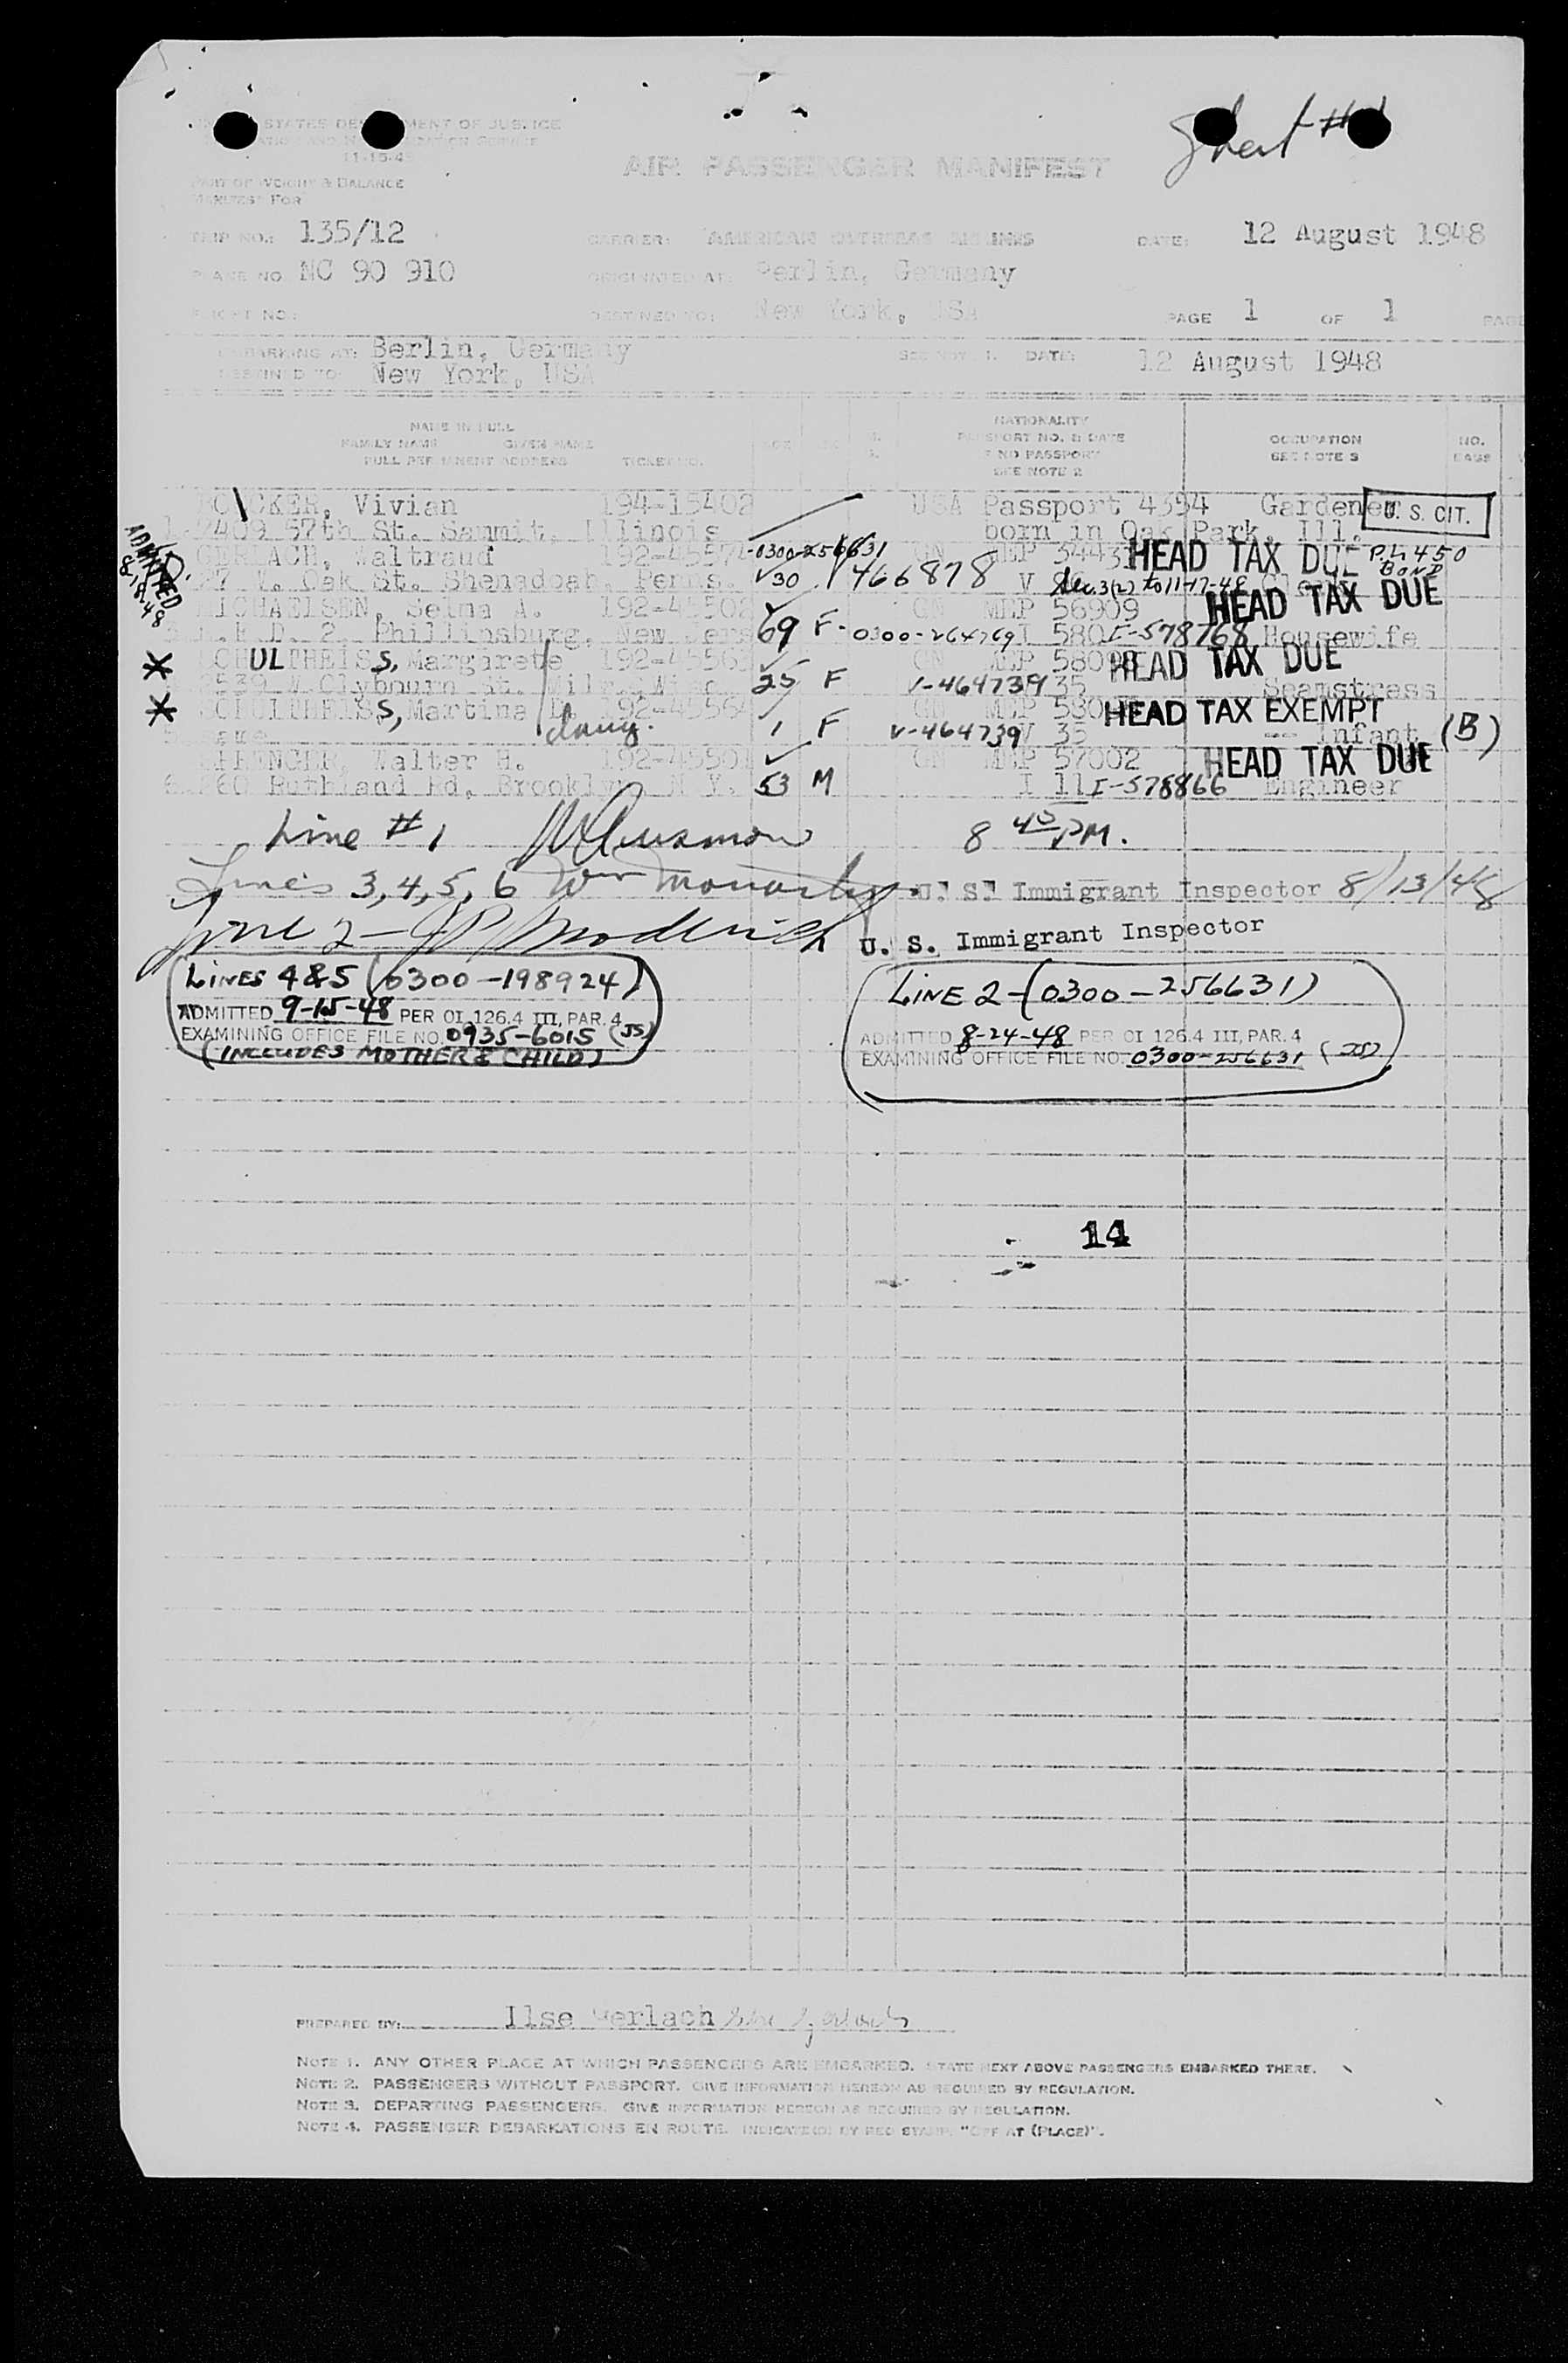 Sheet #
STATES DE MENT OF JUSTICE
11-15-4
PART OF WEIGHT & BALANCE
MANIFEST FOR
AIR PASSENGER MANIFEST
TRIP NO.: 135/12 CARRIER: AMERICAN OVERSEAS AIRLINES DATE: 12 August 1948
PLANE NO. NC 90 910 ORIGINATED AT: Berlin, Germany
FLIGHT NO.: DESTINED TO: New York, USA PAGE 1 OF 1
EMBARKING AT: Berlin, Germany SEE NOTE 1. DATE: 12 August 1948
DESTINED TO: New York, USA
NAME IN FULL NATIONALITY
FAMILY NAME GIVEN NAME AGE PASSPORT NO. & DATE OCCUPATION NO.
FULL PERMANENT ADDRESS TICKET NO. IF NO PASSPORT SEE NOTE 3 BAGS
SEE NOTE 2
CKER, Vivian 194-15402 USA Passport 4394 Gardener U. S. CIT.
1 7409 57th St. Summit, Illinois born in Oak Park, Ill.
ADMITTED 8-18-48
GERLACH, Waltraud 192-45574 0300-256631 GN MEP 3443 HEAD TAX DUE P.L. 450 BOND
27 W. Oak St. Shenadoah, Penns. 30 466878 V Sec. 3(2) to 11-17-48
MICHAELSEN, Selma A. 192-45502 GN MEP 56909 HEAD TAX DUE
R.F.D. 2, Phillipsburg, New Jers 69 F 0300-264769 I 580 I-578768 Housewife
* SCHULTHEISS, Margarete 192-45563 GN MEP 58098 HEAD TAX DUE
2539 W Clybourn St. Milw. Wisc 25 F V-464739 35 Seamstress
* SCHULTHEISS, Martina D. 192-45564 GN MEP 580 HEAD TAX EXEMPT
5 same daug. 1 F V-464739 V 35 -- Infant (B)
SPRENGER, Walter H. 192-45501 GN MEP 57002 HEAD TAX DUE
6 260 Ruthland Rd, Brooklyn, N Y. 53 M I 11 I-578866 Engineer
Line #1 8 45 PM.
Lines 3,4,5,6 Wm U. S. Immigrant Inspector 8/13/48
Line 2- U. S. Immigrant Inspector
LINES 4&5 (0300-198924)
ADMITTED 9-15-48 PER OI 126.4 III, PAR. 4
EXAMINING OFFICE FILE NO. 0935-6015 (JS)
(INCLUDES MOTHER & CHILD)
LINE 2-(0300-256631)
ADMITTED 8-24-48 PER OI 126.4 III, PAR. 4
EXAMINING OFFICE FILE NO. 0300-256631 (JS)
14
PREPARED BY: Ilse Gerlach Ilse Gerlach
NOTE 1. ANY OTHER PLACE AT WHICH PASSENGERS ARE EMBARKED. STATE NEXT ABOVE PASSENGERS EMBARKED THERE.
NOTE 2. PASSENGERS WITHOUT PASSPORT. GIVE INFORMATION HEREON AS REQUIRED BY REGULATION.
NOTE 3. DEPARTING PASSENGERS. GIVE INFORMATION HEREON AS REQUIRED BY REGULATION.
NOTE 4. PASSENGER DEBARKATIONS EN ROUTE. INDICATED BY RED STAMP. "OFF AT (PLACE)".